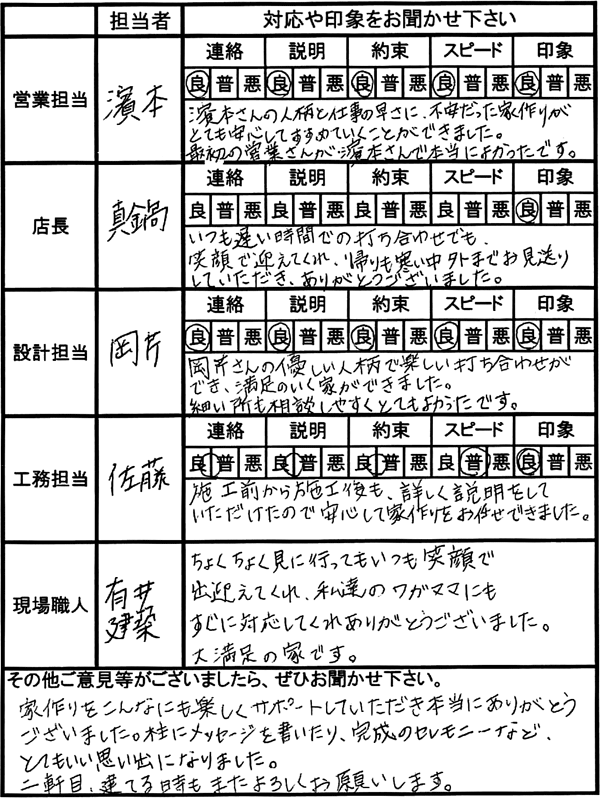 担当者 対応や印象をお聞かせ下さい
営業担当 濱本
連絡 説明 約束 スピード 印象
良 普 悪 良 普 悪 良 普 悪 良 普 悪 良 普 悪
濱本さんの人柄と仕事の早さに、不安だった家作りが
とても安心してすすめていくことができました。
最初の営業さんが濱本さんで本当によかったです。
店長 真鍋
連絡 説明 約束 スピード 印象
良 普 悪 良 普 悪 良 普 悪 良 普 悪 良 普 悪
いつも遅い時間での打ち合わせでも、
笑顔で迎えてくれ、帰りも寒い中外までお見送り
していただき、ありがとうございました。
設計担当 岡芹
連絡 説明 約束 スピード 印象
良 普 悪 良 普 悪 良 普 悪 良 普 悪 良 普 悪
岡芹さんの優しい人柄で楽しい打ち合わせが
でき、満足のいく家ができました。
細い所も相談しやすくとてもよかったです。
工務担当 佐藤
連絡 説明 約束 スピード 印象
良 普 悪 良 普 悪 良 普 悪 良 普 悪 良 普 悪
施工前から施工後も、詳しく説明をして
いただけたので安心して家作りをお任せできました。
現場職人 有井
建築
ちょくちょく見に行ってもいつも笑顔で
出迎えてくれ、私達のワガママにも
すぐに対応してくれありがとうございました。
大満足の家です。
その他ご意見等がございましたら、ぜひお聞かせ下さい。
家作りをこんなにも楽しくサポートしていただき本当にありがとう
ございました。柱にメッセージを書いたり、完成のセレモニーなど、
とてもいい思い出になりました。
二軒目、建てる時もまたよろしくお願いします。